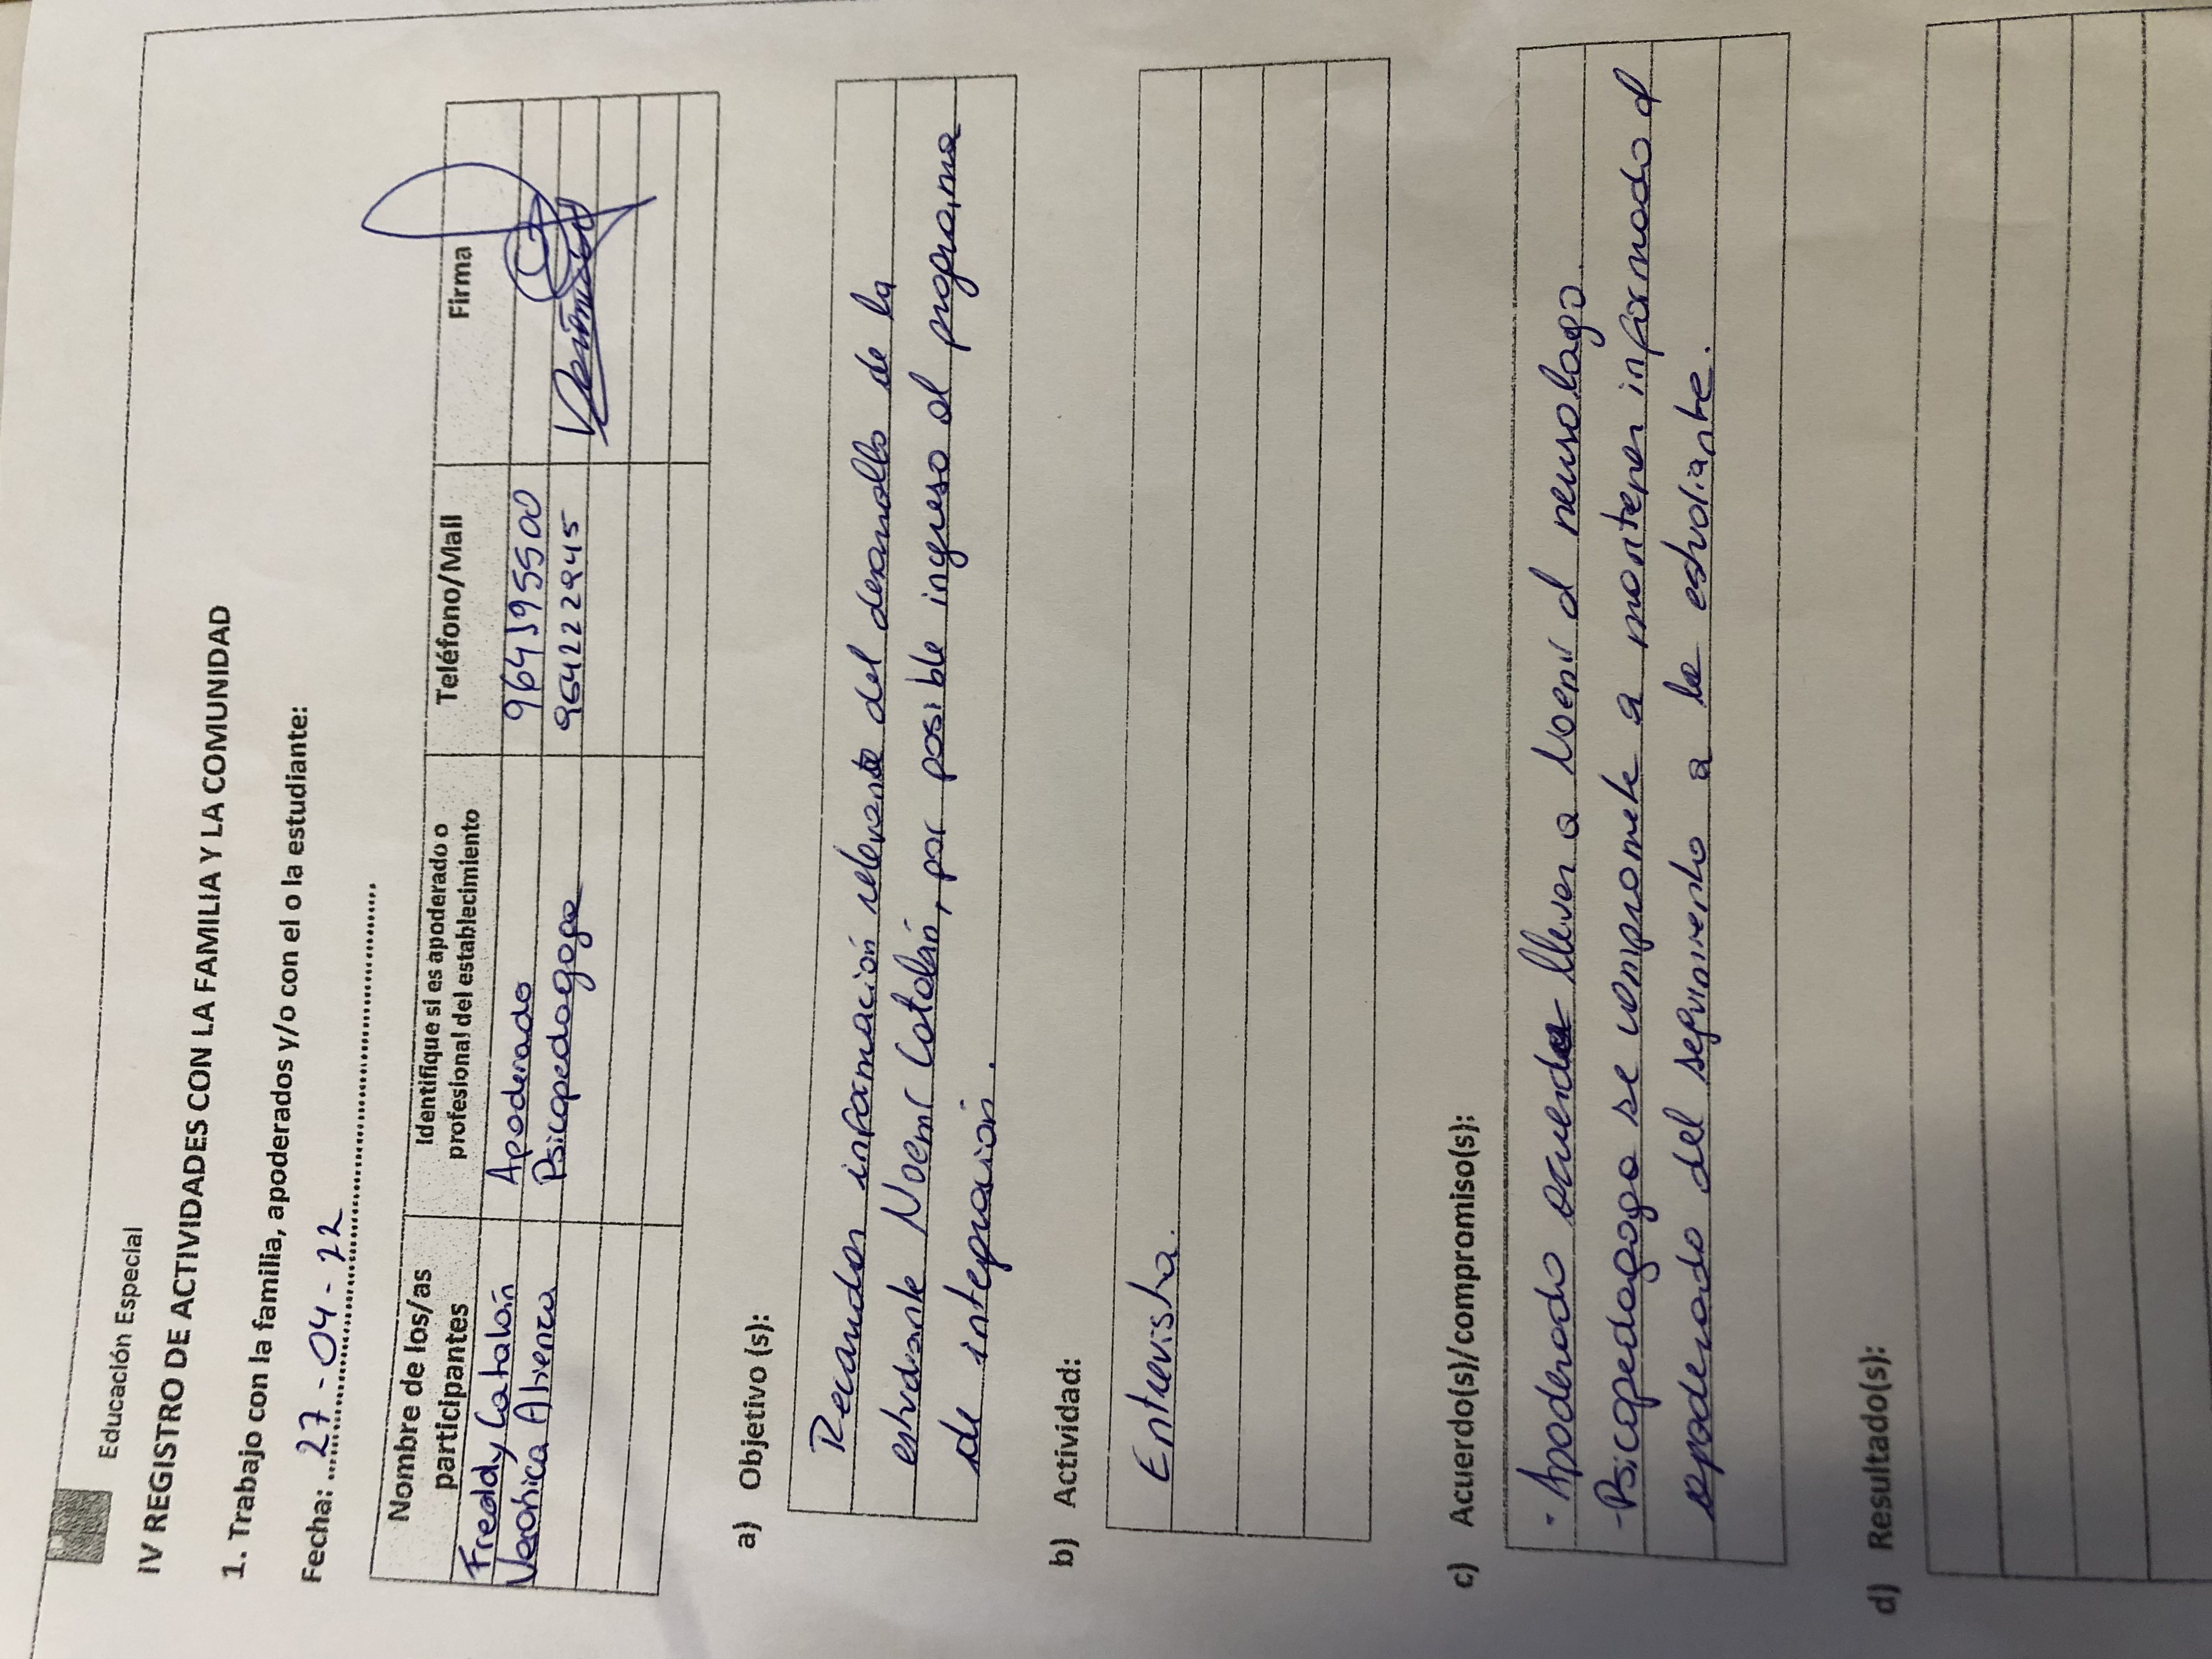 Educación Especial
IV REGISTRO DE ACTIVIDADES CON LA FAMILIA Y LA COMUNIDAD
1. Trabajo con la familia, apoderados y/o con el o la estudiante:
Fecha: 27-04-22
Nombre de los/as participantes Identifique si es apoderado o profesional del establecimiento Teléfono/Mail Firma
Freddy Catalán Apoderado
Verónica Psicopedagoga 964222945
a) Objetivo (s):
Recaudar información relevante del desarrollo de la
estudiante Noemí Catalán, por posible ingreso al programa
de integración.
b) Actividad:
Entrevista.
c) Acuerdo(s)/compromiso(s):
- Apoderado acuerda llevar a Noemí al neurólogo.
- Psicopedagoga se compromete a mantener informado al
apoderado del seguimiento a la estudiante.
d) Resultado(s):